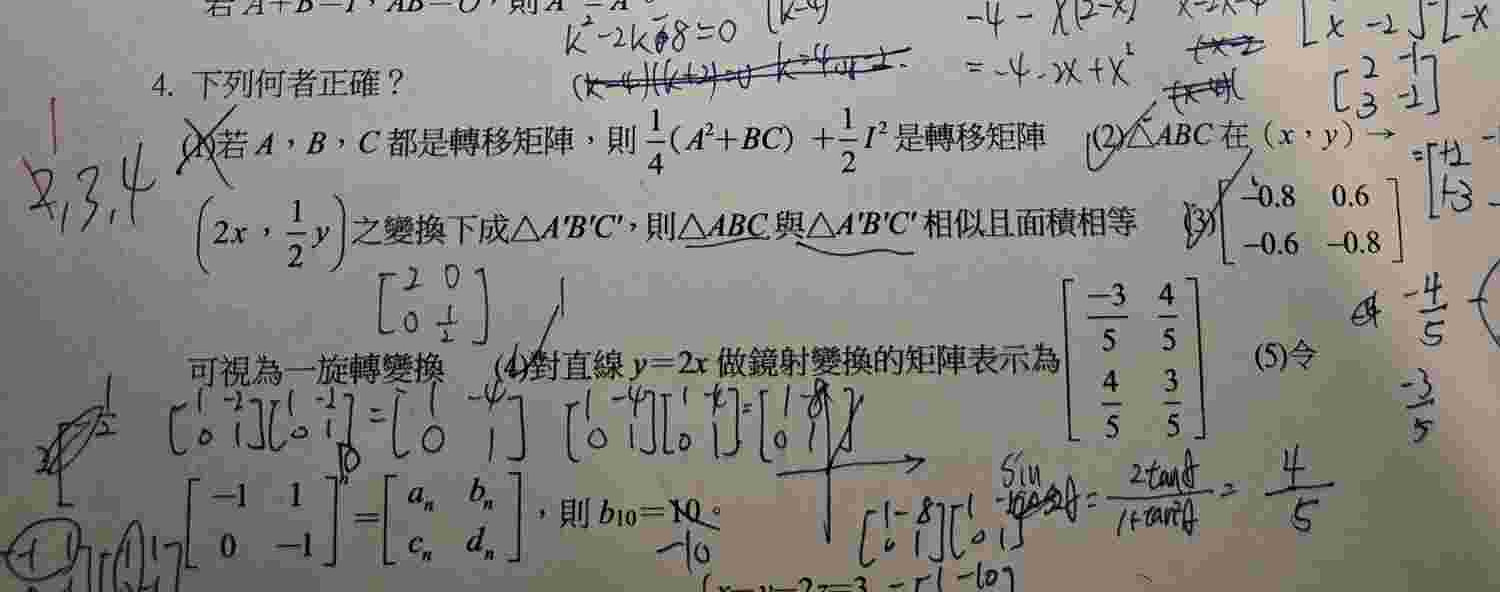 若 A+B=I，AB=O，則 A
k²-2k-8=0
(k-4)
-4-x(2-x)
=-4-2x+x²
[x -2]
[2 -1
3 -2]
4. 下列何者正確？
1
2,3,4
(1)若 A，B，C 都是轉移矩陣，則 1/4(A²+BC) + 1/2 I² 是轉移矩陣 (2)△ABC 在（x，y）→
(2x，1/2 y) 之變換下成△A'B'C'，則△ABC 與△A'B'C' 相似且面積相等 (3)[-0.8 0.6
-0.6 -0.8]
[2 0
0 1/2]
可視為一旋轉變換 (4)對直線 y=2x 做鏡射變換的矩陣表示為 [-3/5 4/5
4/5 3/5] (5)令
-4/5
-3/5
[1 -2
0 1][1 -2
0 1]=[1 -4
0 1]
[1 -4
0 1][1 -4
0 1]=[1 -8
0 1]
[-1 1
0 -1]ⁿ=[aₙ bₙ
cₙ dₙ]，則 b₁₀=10。
-10
[1 -8
0 1][1
0 1]
sin = 2tanθ/1+tan²θ = 4/5
x-y-2z=3
=[1 -10]